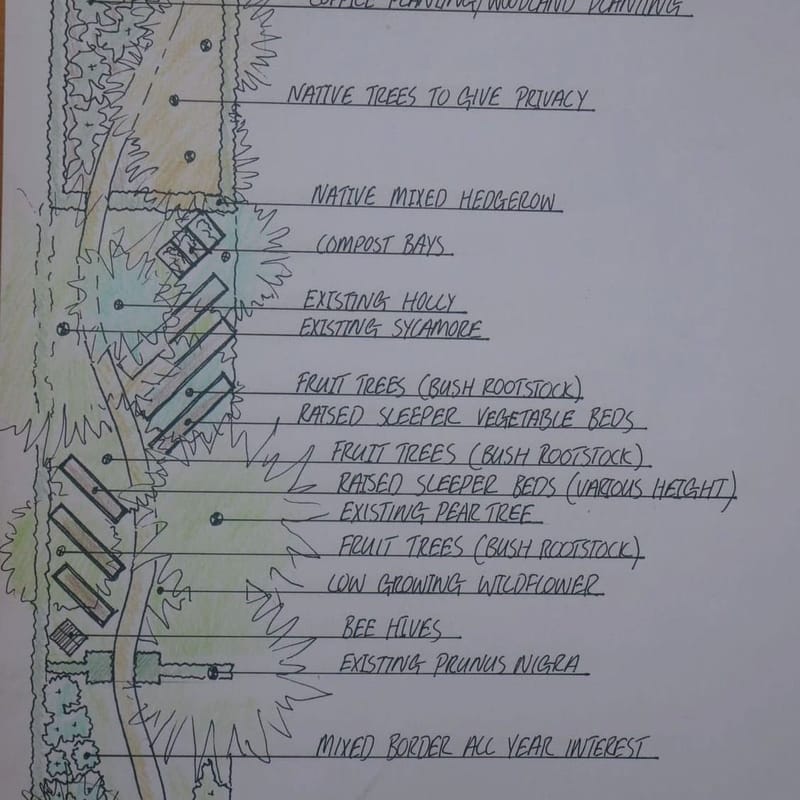 COPPICE PLANTING/WOODLAND PLANTING
NATIVE TREES TO GIVE PRIVACY
NATIVE MIXED HEDGEROW
COMPOST BAYS
EXISTING HOLLY
EXISTING SYCAMORE
FRUIT TREES (BUSH ROOTSTOCK)
RAISED SLEEPER VEGETABLE BEDS
FRUIT TREES (BUSH ROOTSTOCK)
RAISED SLEEPER BEDS (VARIOUS HEIGHT)
EXISTING PEAR TREE
FRUIT TREES (BUSH ROOTSTOCK)
LOW GROWING WILDFLOWER
BEE HIVES
EXISTING PRUNUS NIGRA
MIXED BORDER ALL YEAR INTEREST